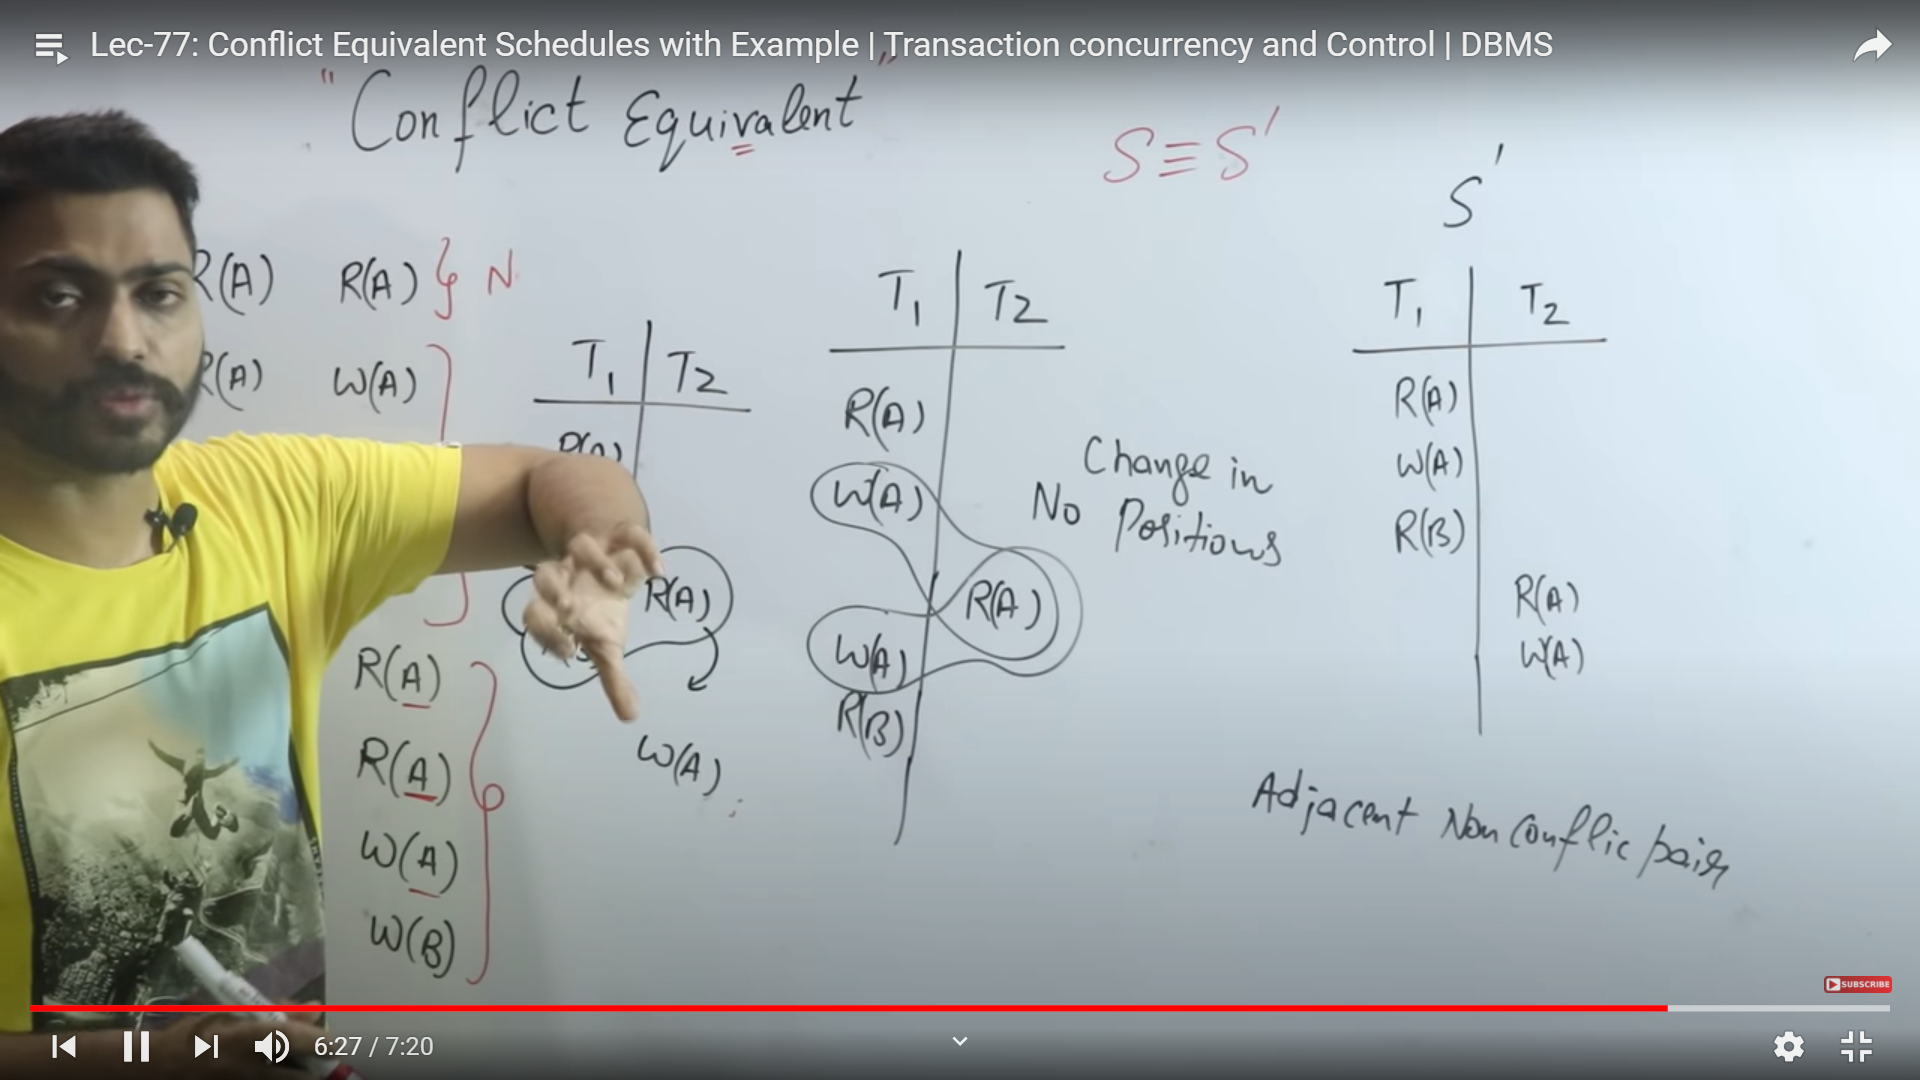 Lec-77: Conflict Equivalent Schedules with Example | Transaction concurrency and Control | DBMS
"Conflict Equivalent"
S≡S'
S'
R(A) R(A) } N
R(A) W(A)
R(A)
R(A)
W(A)
W(B)
T1 T2
R(A)
W(A)
T1 T2
R(A)
W(A)
R(A)
W(A)
R(B)
Change in
No Positions
T1 T2
R(A)
W(A)
R(B)
R(A)
W(A)
Adjacent Non Conflic pair
SUBSCRIBE
6:27 / 7:20